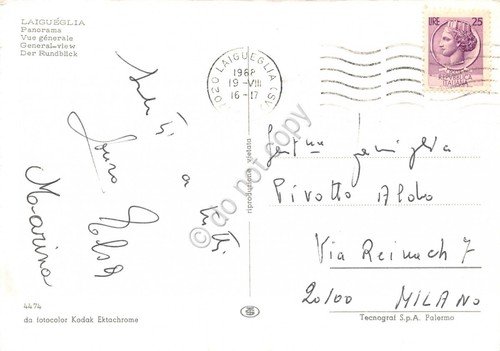 LAIGUÉGLIA
Panorama
Vue générale
General-view
Der Rundblick
17020 LAIGUEGLIA (SV)
1968
19-VIII
16-17
LIRE 25
Saluti
a tutti
Elsa
Marina
Gent.ma famiglia
Pivotto Aldo
Via Reinach 7
20100 MILANO
riproduzione vietata
do not copy
4474
da fotocolor Kodak Ektachrome
Tecnograf S.p.A. Palermo